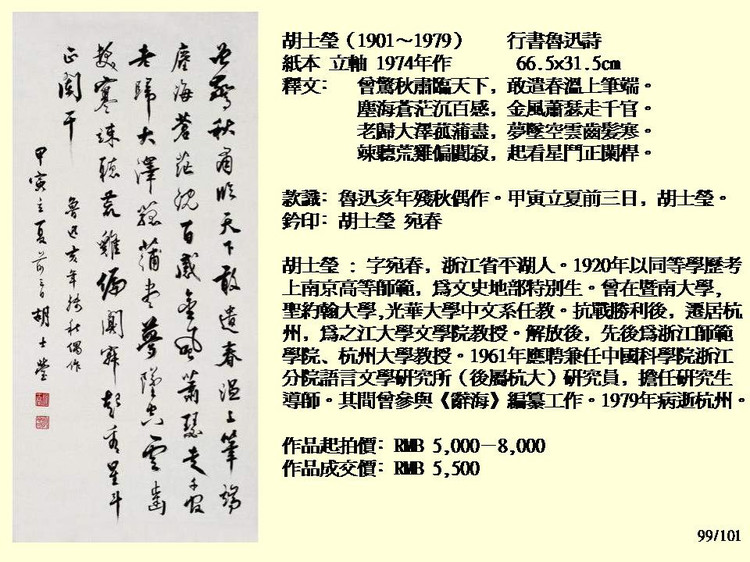 曾驚秋肅臨天下敢遣春温上筆端
塵海蒼茫沉百感金風蕭瑟走千官
老歸大澤菰蒲盡夢墜空雲齒
髮寒竦聽荒雞偏闃寂起看星斗
正闌干
魯迅亥年殘秋偶作
甲寅立夏前三日胡士瑩
胡士瑩（1901～1979） 行書魯迅詩
紙本 立軸 1974年作 66.5x31.5cm
釋文： 曾驚秋肅臨天下，敢遣春溫上筆端。
塵海蒼茫沉百感，金風蕭瑟走千官。
老歸大澤菰蒲盡，夢墜空雲齒髮寒。
竦聽荒雞偏闃寂，起看星鬥正闌桿。
款識：魯迅亥年殘秋偶作。甲寅立夏前三日，胡士瑩。
鈐印：胡士瑩 宛春
胡士瑩 : 字宛春，浙江省平湖人。1920年以同等學歷考
上南京高等師範，爲文史地部特別生。曾在暨南大學，
聖約翰大學,光華大學中文系任教。抗戰勝利後，遷居杭
州，爲之江大學文學院教授。解放後，先後爲浙江師範
學院、杭州大學教授。1961年應聘兼任中國科學院浙江
分院語言文學研究所（後屬杭大）研究員，擔任研究生
導師。其間曾參與《辭海》編纂工作。1979年病逝杭州。
作品起拍價: RMB 5,000－8,000
作品成交價: RMB 5,500
99/101